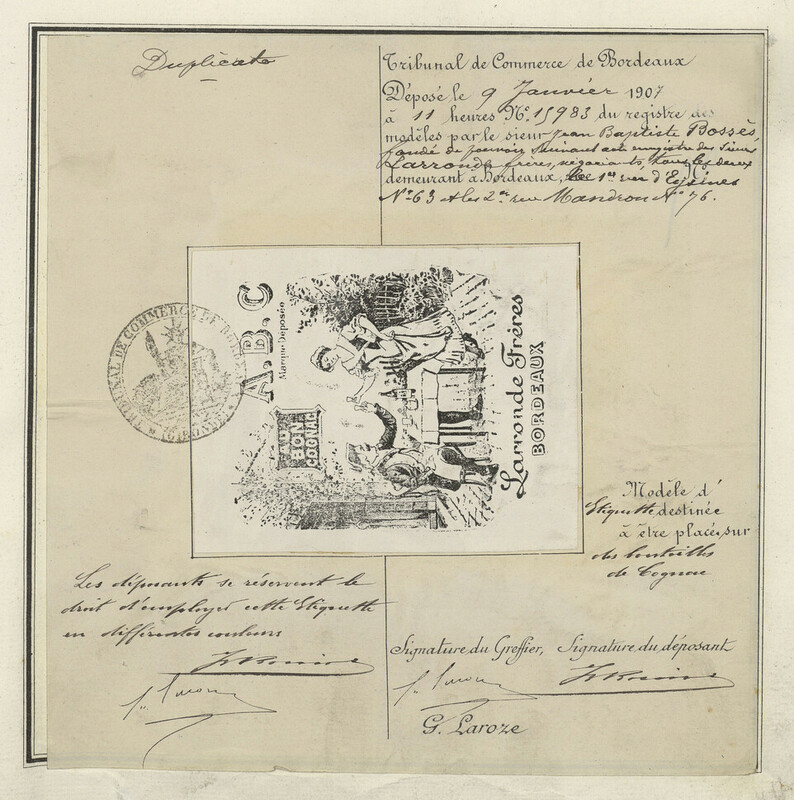 Duplicata
Tribunal de Commerce de Bordeaux
Déposé le 9 Janvier 1907
à 11 heures N° 15983 du registre des
modèles par le sieur Jean Baptiste Bossès,
fondé de pouvoir suivant acte enregistré des sieurs
Larronde frères, négociants, tous les deux
demeurant à Bordeaux, le 1er rue d'Eysines
N° 63 et les 2es rue Mandron N° 76.
TRIBUNAL DE COMMERCE DE BORDEAUX
A.B.C
Marque Déposée
AU
BON
COGNAC
Larronde Frères
BORDEAUX
Modèle d'
Etiquette destinée
à être placée sur
des bouteilles
de Cognac
Les déposants se réservent le
droit d'employer cette Etiquette
en différentes couleurs
Signature du Greffier, Signature du déposant
G. Laroze